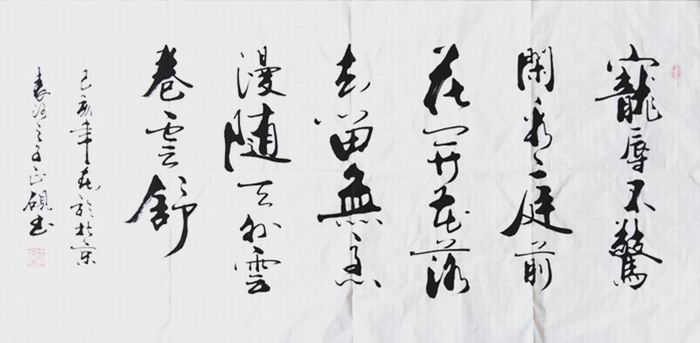 寵辱不驚
閑看庭前
花開花落
去留無意
漫随天外雲
卷雲舒
己亥年於北京
之子正硯书